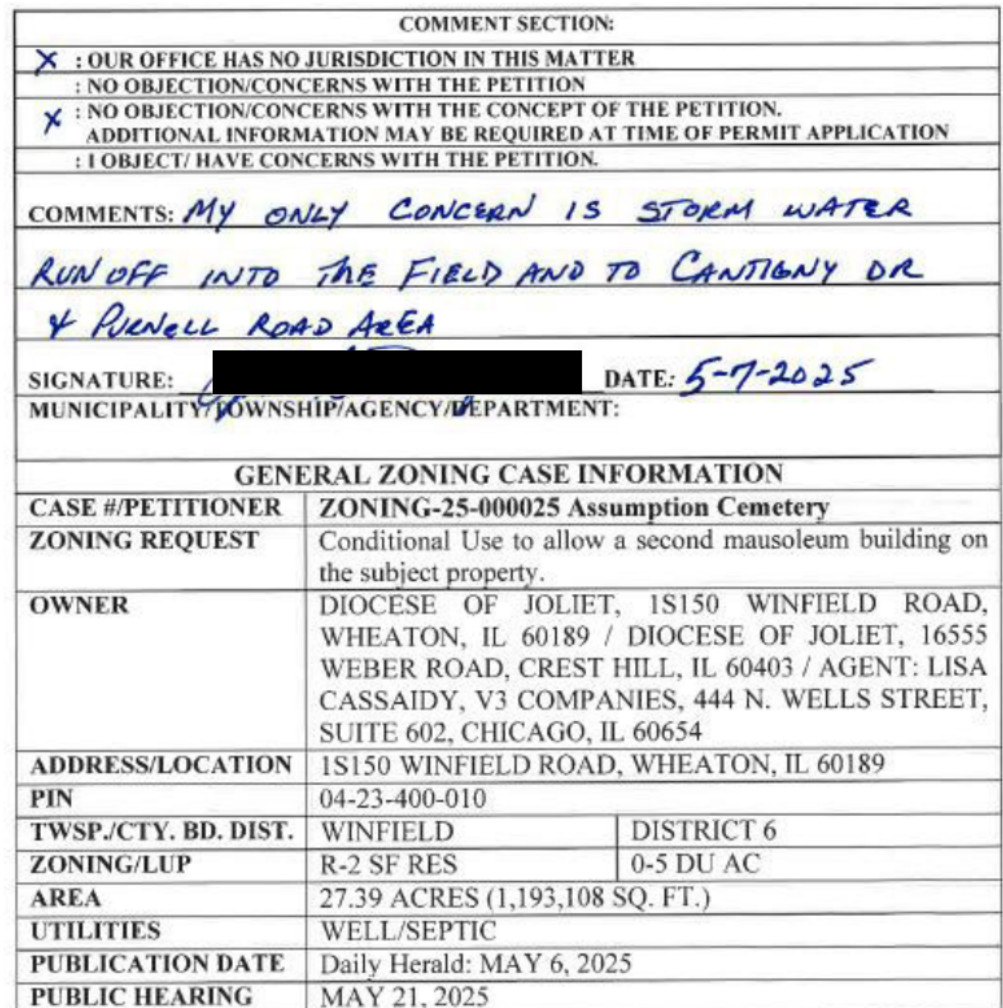 COMMENT SECTION:
X : OUR OFFICE HAS NO JURISDICTION IN THIS MATTER
: NO OBJECTION/CONCERNS WITH THE PETITION
X : NO OBJECTION/CONCERNS WITH THE CONCEPT OF THE PETITION.
ADDITIONAL INFORMATION MAY BE REQUIRED AT TIME OF PERMIT APPLICATION
: I OBJECT/ HAVE CONCERNS WITH THE PETITION.
COMMENTS: MY ONLY CONCERN IS STORM WATER
RUNOFF INTO THE FIELD AND TO CANTIGNY DR
& PURNELL ROAD AREA
SIGNATURE: DATE: 5-7-2025
MUNICIPALITY/TOWNSHIP/AGENCY/DEPARTMENT:
GENERAL ZONING CASE INFORMATION
CASE #/PETITIONER ZONING-25-000025 Assumption Cemetery
ZONING REQUEST Conditional Use to allow a second mausoleum building on
the subject property.
OWNER DIOCESE OF JOLIET, 1S150 WINFIELD ROAD,
WHEATON, IL 60189 / DIOCESE OF JOLIET, 16555
WEBER ROAD, CREST HILL, IL 60403 / AGENT: LISA
CASSAIDY, V3 COMPANIES, 444 N. WELLS STREET,
SUITE 602, CHICAGO, IL 60654
ADDRESS/LOCATION 1S150 WINFIELD ROAD, WHEATON, IL 60189
PIN 04-23-400-010
TWSP./CTY. BD. DIST. WINFIELD DISTRICT 6
ZONING/LUP R-2 SF RES 0-5 DU AC
AREA 27.39 ACRES (1,193,108 SQ. FT.)
UTILITIES WELL/SEPTIC
PUBLICATION DATE Daily Herald: MAY 6, 2025
PUBLIC HEARING MAY 21, 2025